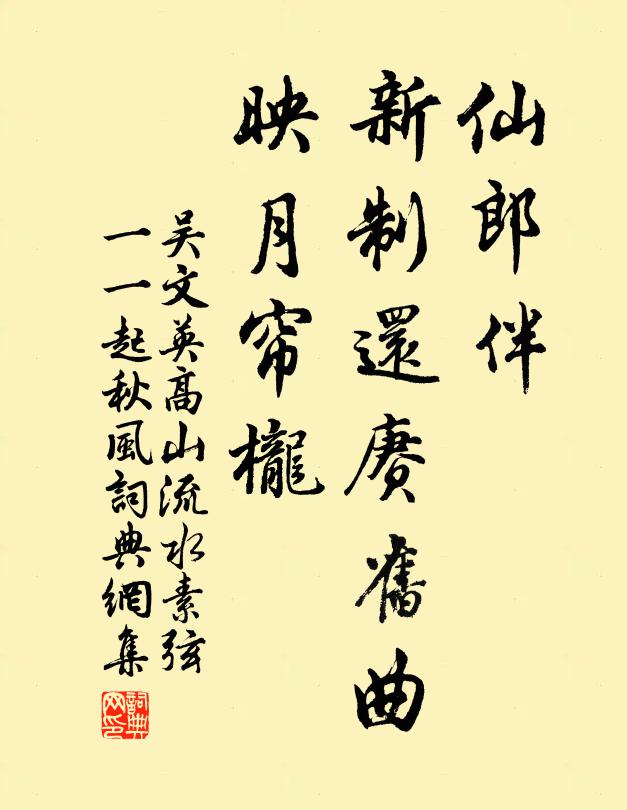 仙郎伴
新制還賡舊曲
映月帘櫳
吴文英高山流水素弦
一一起秋風詞典網集
詞典
网印